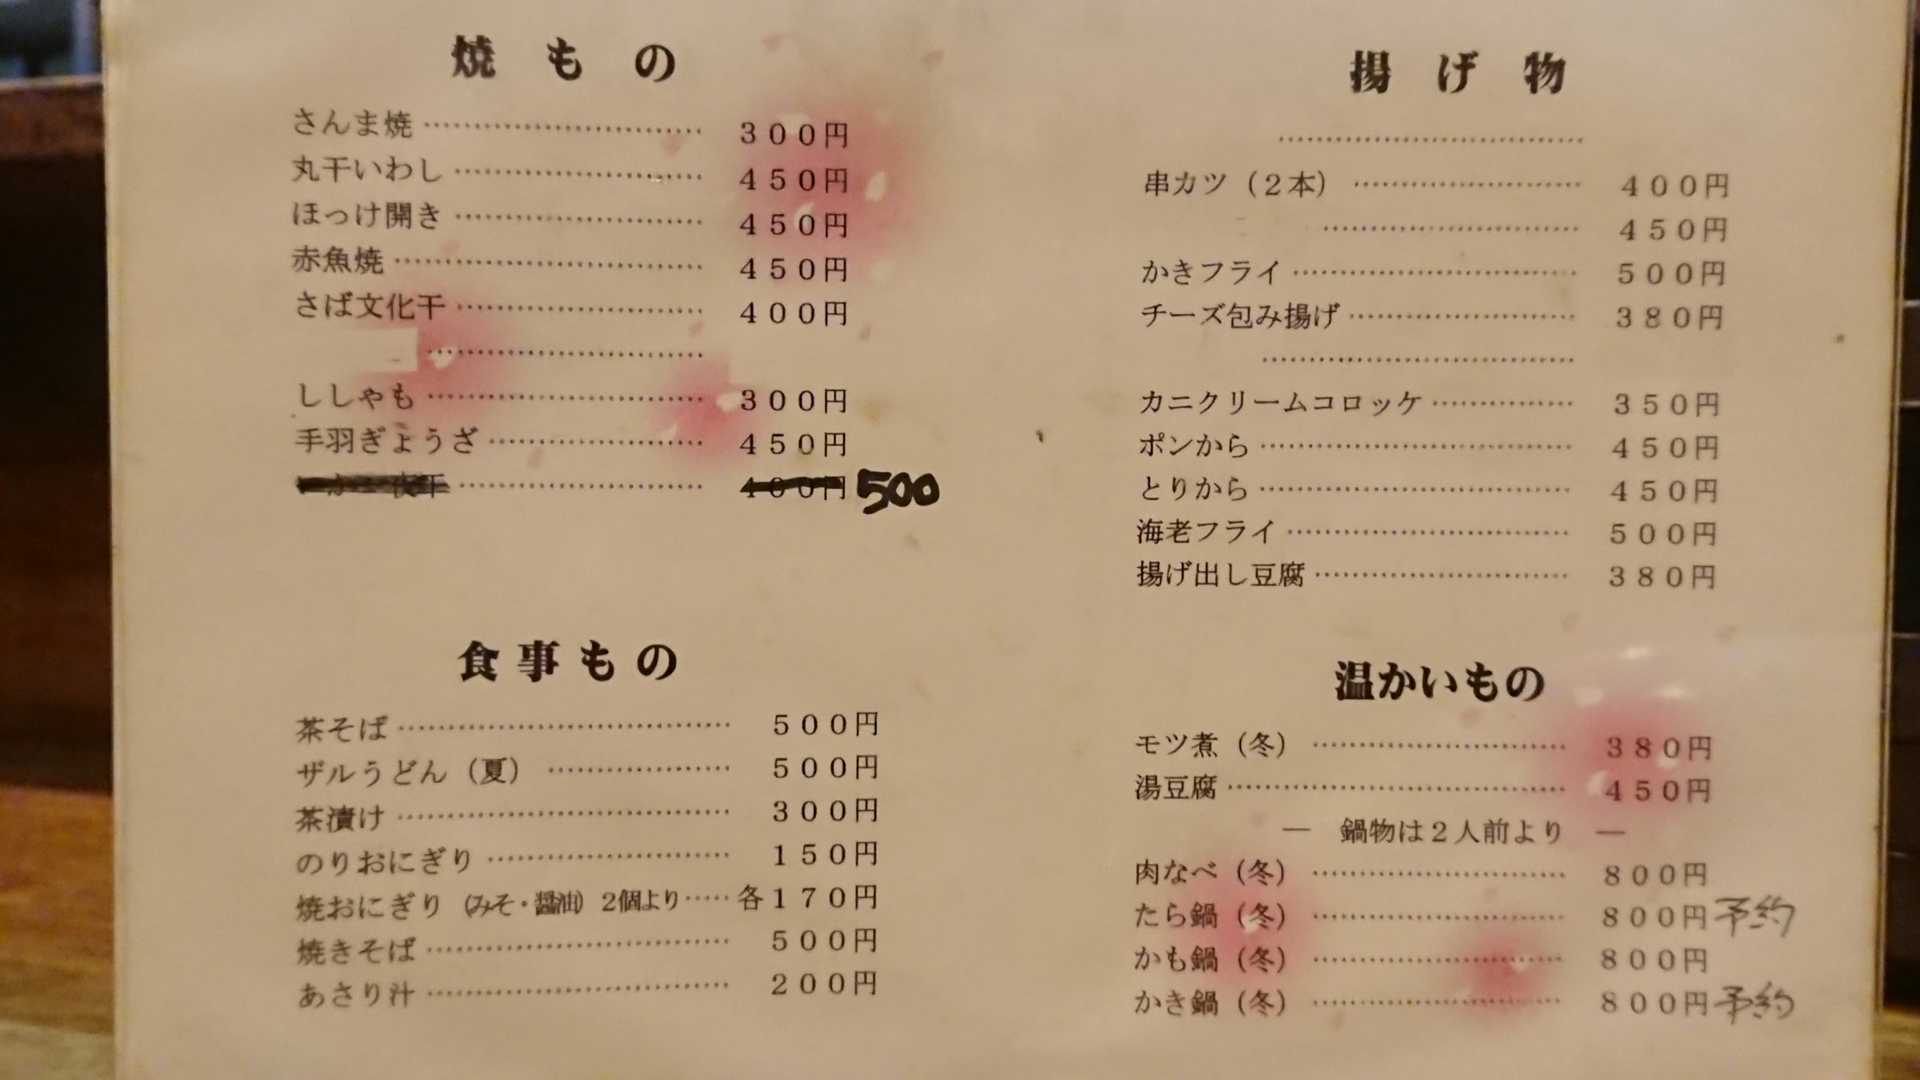 焼もの
さんま焼 300円
丸干いわし 450円
ほっけ開き 450円
赤魚焼 450円
さば文化干 400円
ししゃも 300円
手羽ぎょうざ 450円
400円 500
食事もの
茶そば 500円
ザルうどん（夏） 500円
茶漬け 300円
のりおにぎり 150円
焼おにぎり（みそ・醤油）2個より 各170円
焼きそば 500円
あさり汁 200円
揚げ物
串カツ（2本） 400円
450円
かきフライ 500円
チーズ包み揚げ 380円
カニクリームコロッケ 350円
ポンから 450円
とりから 450円
海老フライ 500円
揚げ出し豆腐 380円
温かいもの
モツ煮（冬） 380円
湯豆腐 450円
― 鍋物は2人前より ―
肉なべ（冬） 800円
たら鍋（冬） 800円 予約
かも鍋（冬） 800円
かき鍋（冬） 800円 予約